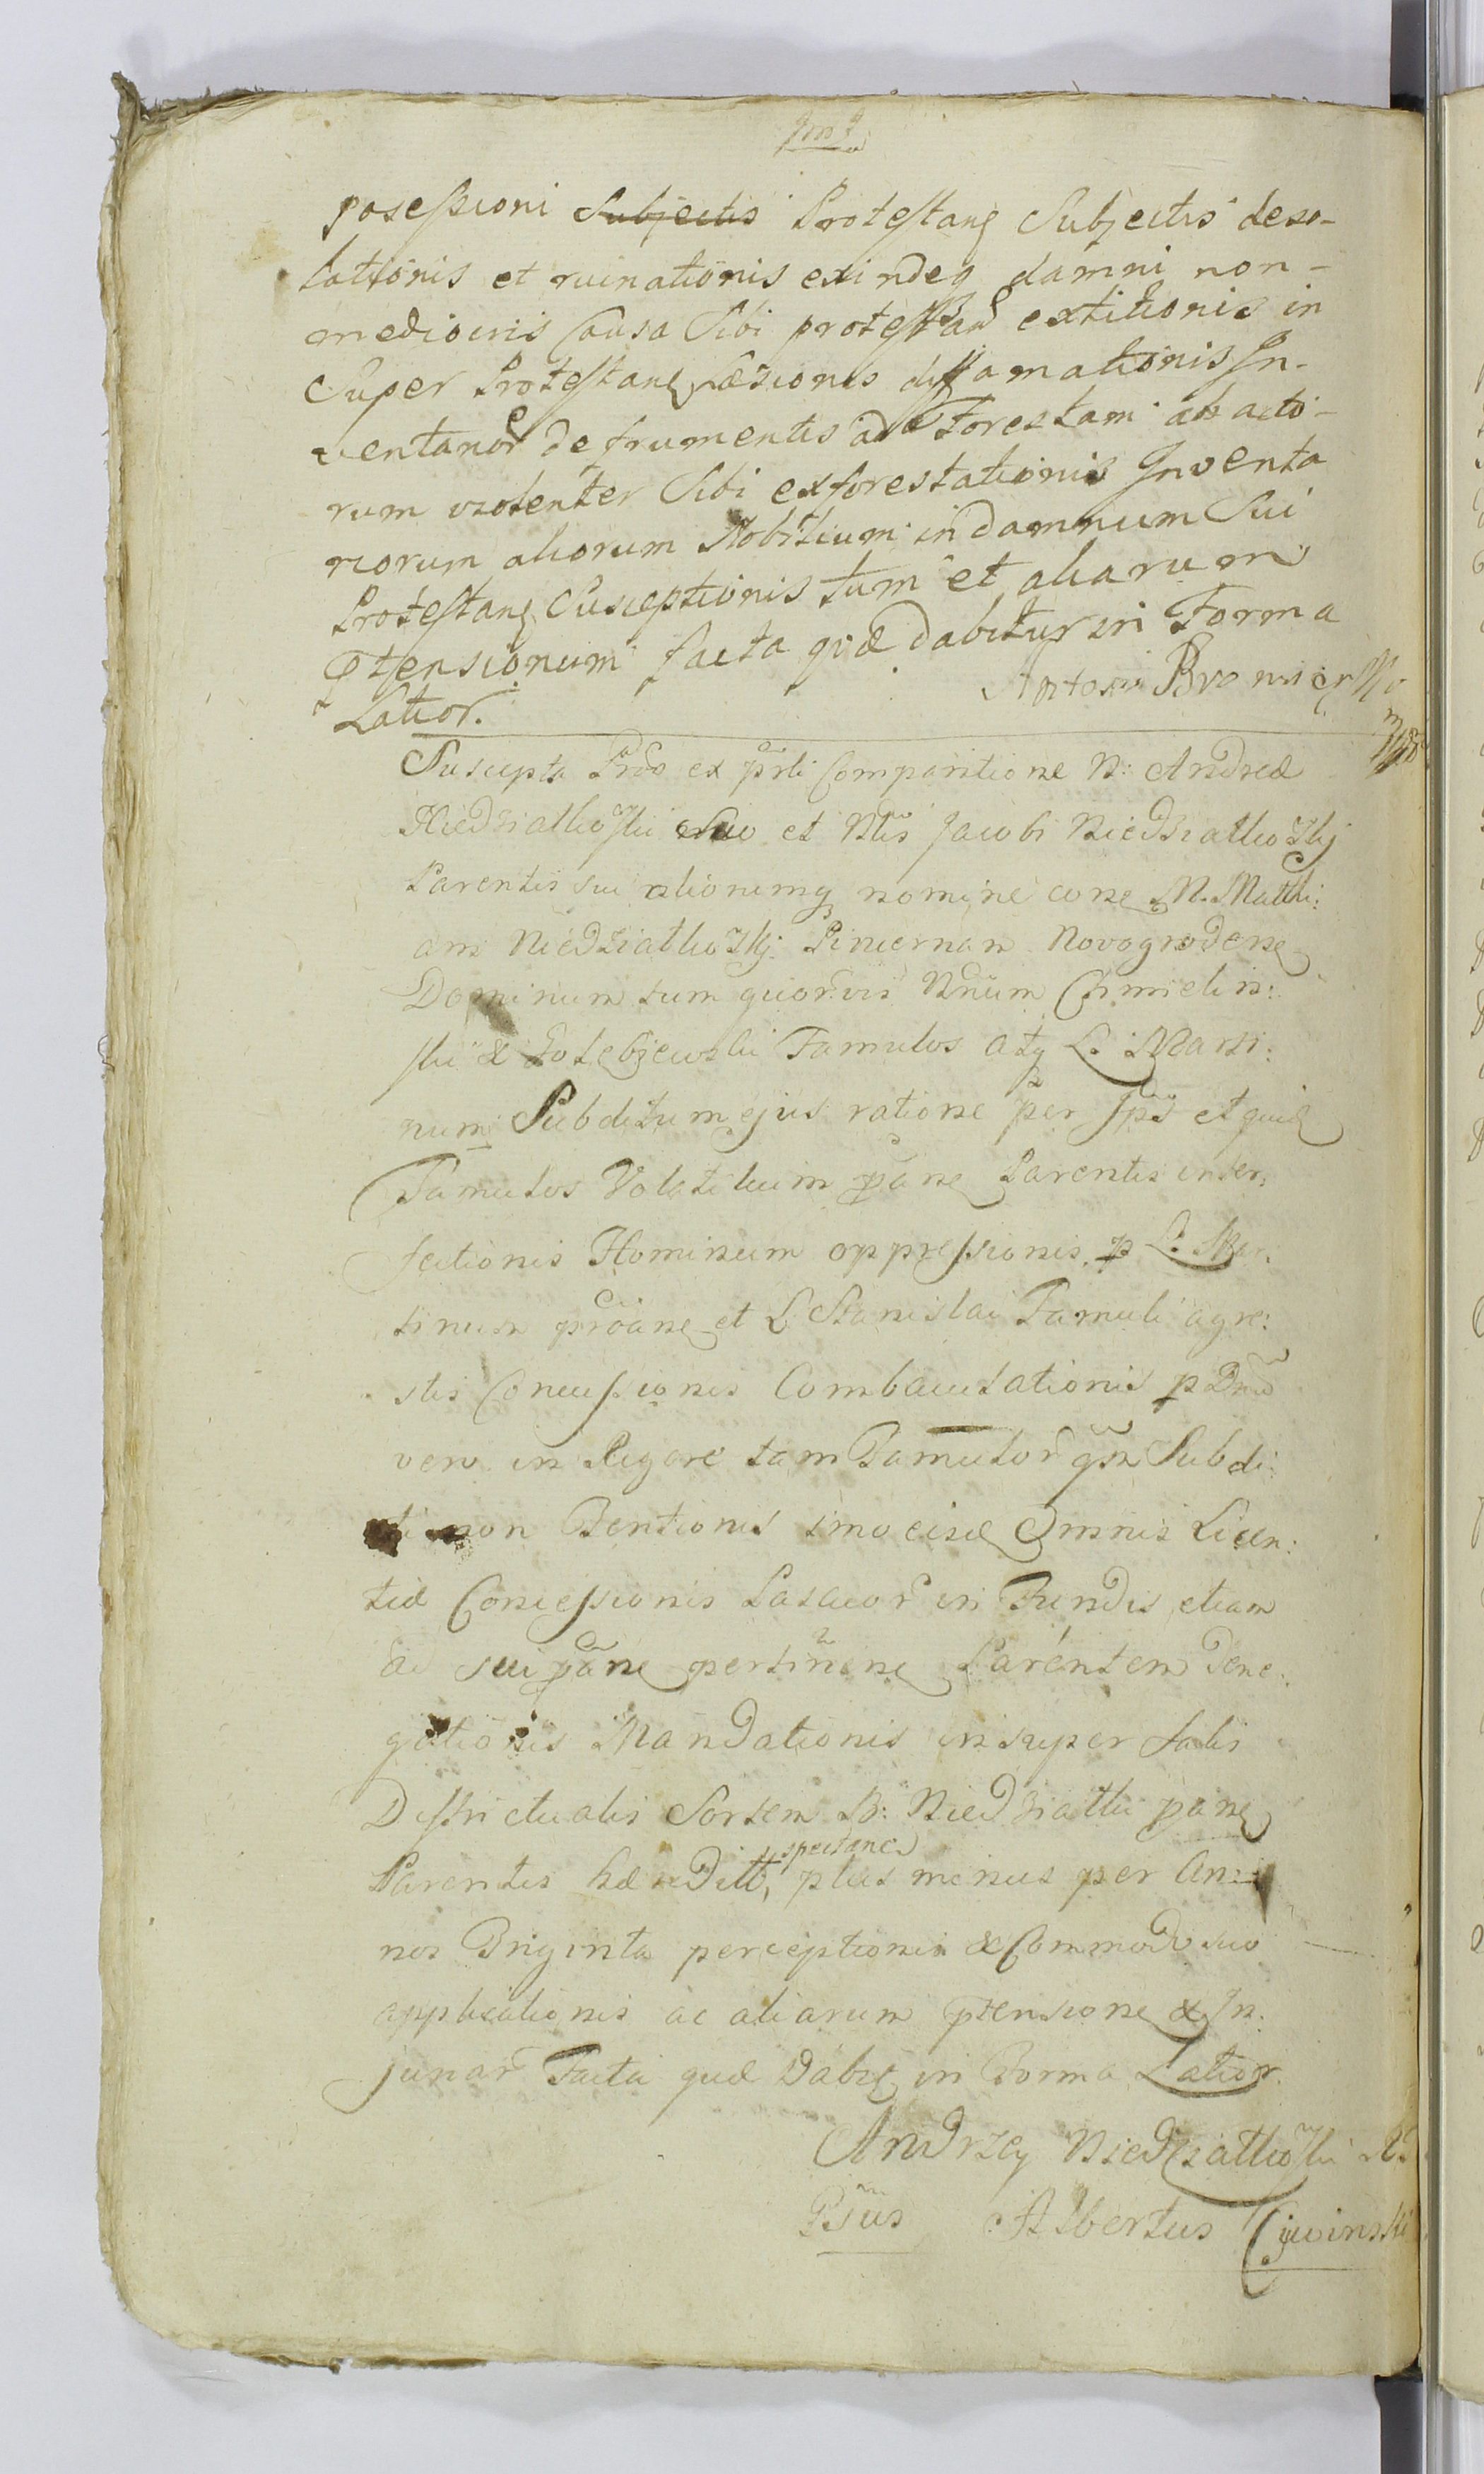 posessioni Subjectis Protestanς Subjectis deso-
lationis et ruinationis exindeq damni non-
mediocris Causa Sibi protestañ extitionis in
Super Protestanς Læsionis diffamationis In-
ventarior̃ de frumentis ad Forestam abacto-
rum violenter Sibi exforestationis Inventa
riorum aliorum Nobilium in damnum Sui
Protestanς Susceptionis tum et aliarum
ptensionum facta quæ dabitur in Forma
Latior. Antoni
Suscepta Prõ ex p̃rli Comparitione N: Andreæ
Niedziałkoski suo et Nlis Jacobi Niedziałkoskij
Parentis sui aliorumq nomine cone M. Matthi:
am Niedziałkoskij Pincernam Novogrodenς
Dominum tum Chmielin:
ski & Gołębiewski Famulos atq L. Marti:
num Subditum ejus ratione per Ips̃ et
Famulos Volatilium p̃anς Parentis inter:
fectionis Hominum oppressionis p L. Mar:
tinum prõanς et L. Stanislai Famuli agre:
stis Concussionis Combaculationis p Dnũ
vero in Rigore tam Famulor̃ q̃m Subdi:
ti non Tentionis imo eisd Omnis Licen:
tiæ Concessionis Pascuor̃ in Fundis etiam
ad sui p̃anς pertinenς Parentem Dene:
gationis Mandationis insuper Salis
Districtualis Sortem N: Niedziałki p̃anς
spectanς
Parentis hæredit, plus minus per An:
nos Triginta perceptionis & Commodo suo
applicationis ac aliarum ptensionς & In:
juriar̃ Facta quæ Dabiς in Forma Latior.
Andrzey Niedziałkoski
Albertus Ciwinski